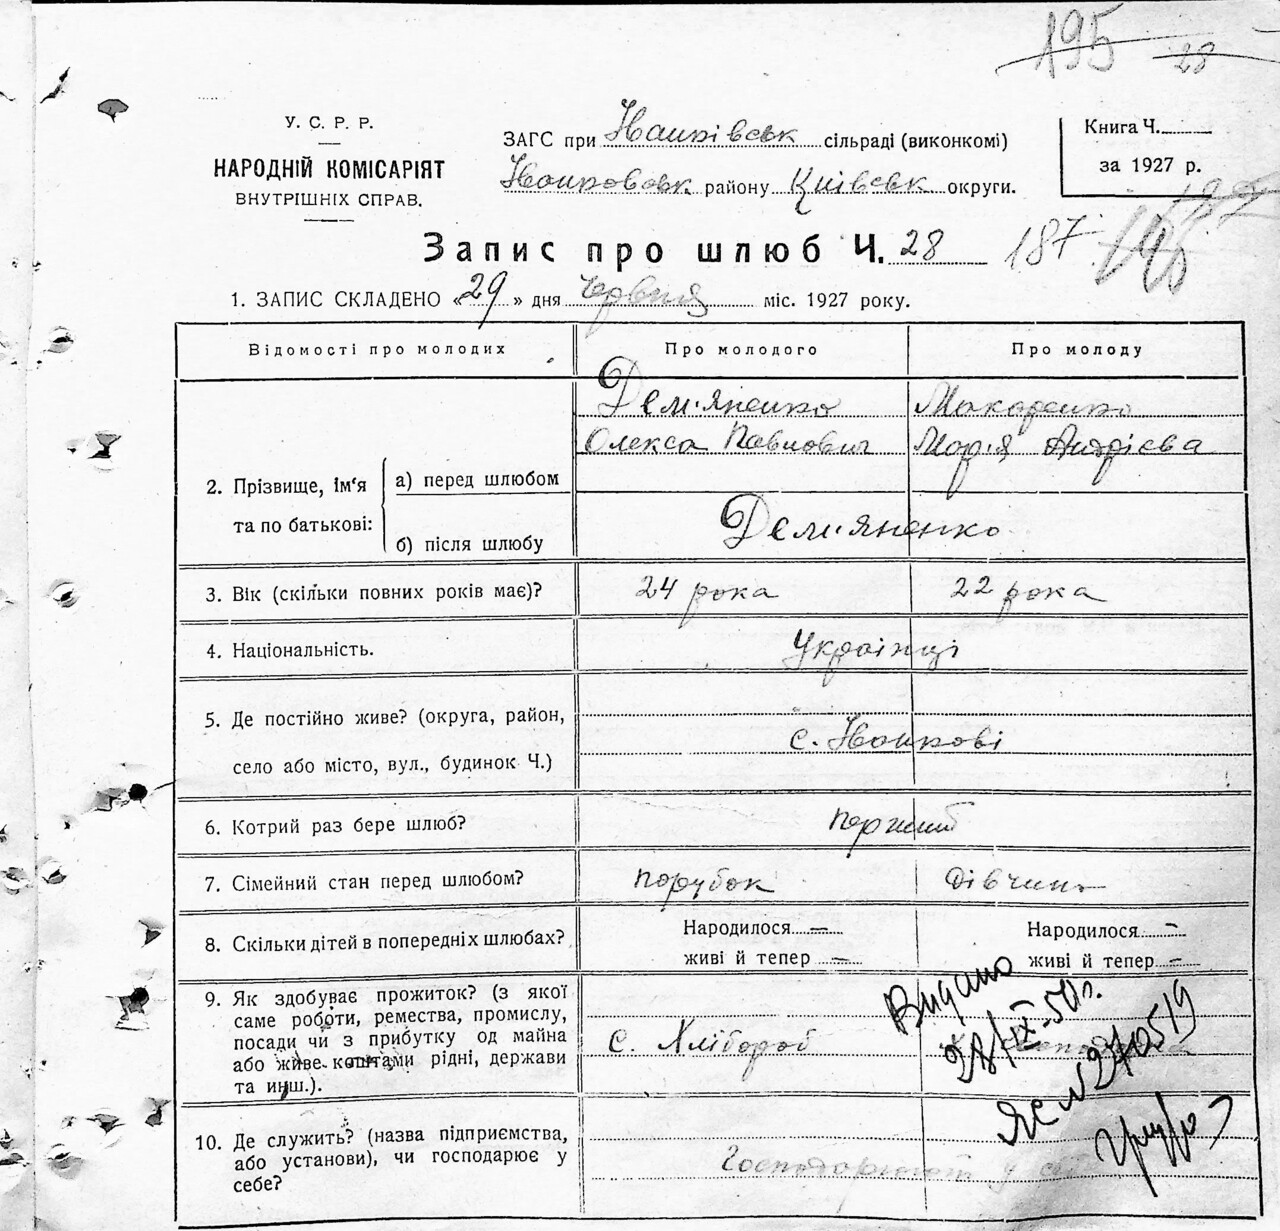 195 28
У. С. Р. Р.
НАРОДНІЙ КОМІСАРІЯТ
ВНУТРІШНІХ СПРАВ.
ЗАГС при сільраді (виконкомі)
району Київськ округи.
Книга Ч.
за 1927 р.
Запис про шлюб Ч. 28 187
1. ЗАПИС СКЛАДЕНО «29» дня Червня міс. 1927 року.
Відомості про молодих Про молодого Про молоду
Дем'яненко Макаренко
Олекса Павлович Марія Андрієва
2. Прізвище, ім'я та по батькові: а) перед шлюбом
б) після шлюбу Дем'яненко
3. Вік (скільки повних років має)? 24 рока 22 рока
4. Національність. Українці
5. Де постійно живе? (округа, район,
село або місто, вул., будинок Ч.) с.
6. Котрий раз бере шлюб? перший
7. Сімейний стан перед шлюбом? парубок дівчина
8. Скільки дітей в попередніх шлюбах? Народилося — Народилося —
живі й тепер — живі й тепер —
9. Як здобуває прожиток? (з якої
саме роботи, ремества, промислу,
посади чи з прибутку од майна
або живе коштами рідні, держави
та инш.). с. Хлібороб
Видано
28/IX-50 г.
ЯС № 270519
10. Де служить? (назва підприємства,
або установи), чи господарює у
себе? Господарюют у себе